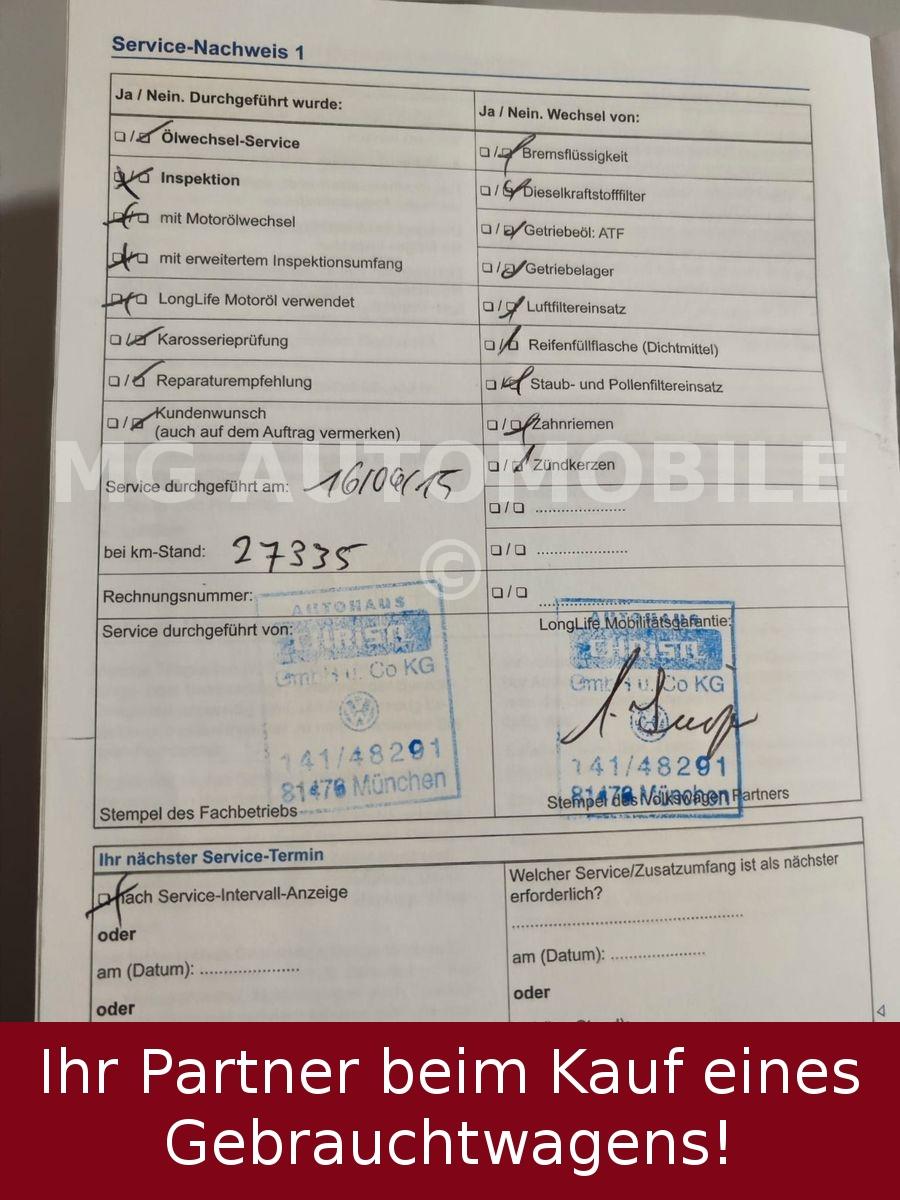 Service-Nachweis 1
Ja / Nein. Durchgeführt wurde:
Ölwechsel-Service
Inspektion
mit Motorölwechsel
mit erweitertem Inspektionsumfang
LongLife Motoröl verwendet
Karosserieprüfung
Reparaturempfehlung
Kundenwunsch
(auch auf dem Auftrag vermerken)
Service durchgeführt am:
bei km-Stand: 27335
Rechnungsnummer:
Service durchgeführt von:
AUTOHAUS
CHRISTL
GmbH u. Co KG
141/48291
81476 München
Stempel des Fachbetriebs
Ja / Nein. Wechsel von:
Bremsflüssigkeit
Dieselkraftstofffilter
Getriebeöl: ATF
Getriebelager
Luftfiltereinsatz
Reifenfüllflasche (Dichtmittel)
Staub- und Pollenfiltereinsatz
Zahnriemen
Zündkerzen
LongLife Mobilitätsgarantie:
AUTOHAUS
CHRISTL
GmbH u. Co KG
141/48291
81476 München
Stempel des Volkswagen Partners
Ihr nächster Service-Termin
nach Service-Intervall-Anzeige
oder
am (Datum):
oder
Welcher Service/Zusatzumfang ist als nächster
erforderlich?
am (Datum):
oder
MG AUTOMOBILE
©
Ihr Partner beim Kauf eines
Gebrauchtwagens!